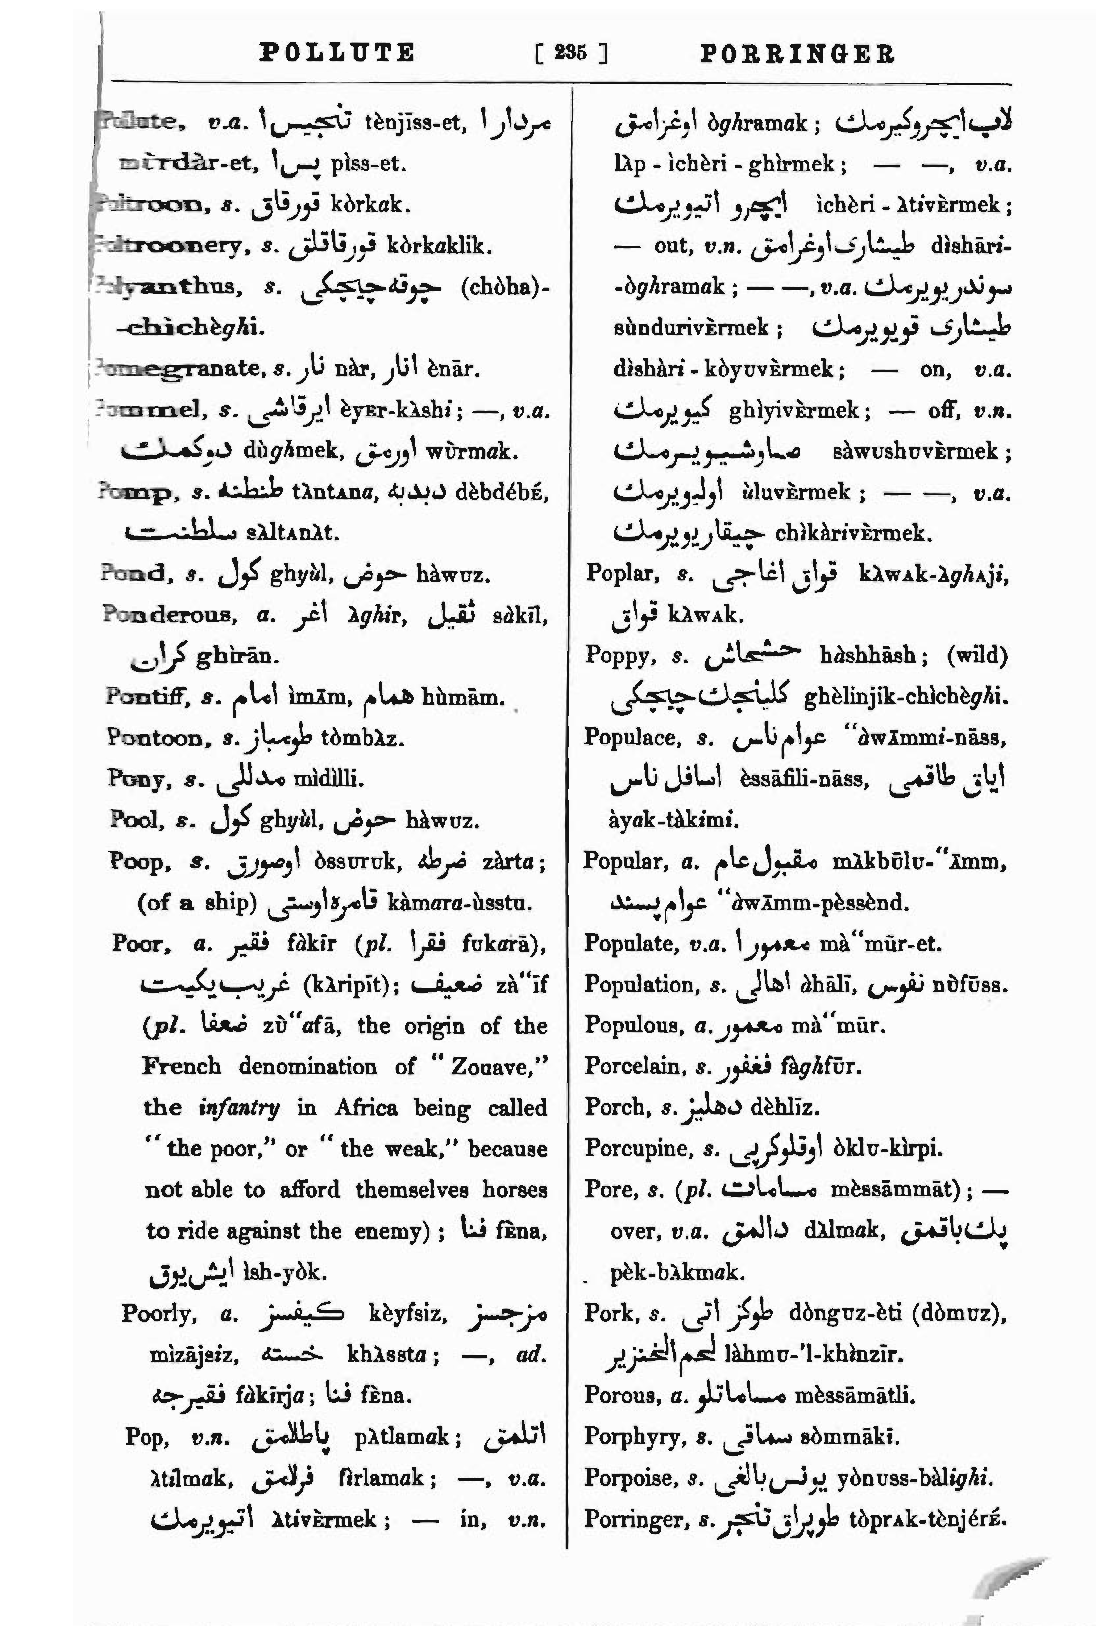 POLLUTE [ 235 ] PORRINGER
Pollute, v.a. تنجیس ا tènjīss-et, مردار ا
mùrdàr-et, پس ا pìss-et.
Poltroon, s. قورقاق kòrkak.
Poltroonery, s. قورقاقلق kòrkaklìk.
Polyanthus, s. چوقه چیچکی (chòha)-
-chìchèghi.
Pomegranate, s. نار nàr, انار ènār.
Pommel, s. ایرقاشی èyᴇr-kλshi; —, v.a.
دوكمك dùghmek, اورمق wùrmak.
Pomp, s. طنطنه tλntᴀna, دبدبه dèbdébÉ,
سلطنت sλltᴀnλt.
Pond, s. کول ghyùl, حوض hàwuz.
Ponderous, a. اغر λghir, ثقیل sàkīl,
کران ghìrān.
Pontiff, s. امام ìmām, همام hùmām.
Pontoon, s. طومباز tòmbλz.
Pony, s. مدللی mìdìlli.
Pool, s. کول ghyùl, حوض hàwuz.
Poop, s. اوصورق òssuruk, ضرطه zàrta;
(of a ship) قامره اوستی kàmara-ùsstu.
Poor, a. فقیر fàkīr (pl. فقرا fukarā),
غریب یکیت (kλripīt); ضعیف zà“īf
(pl. ضعفا zù“afā, the origin of the
French denomination of “ Zouave,”
the infantry in Africa being called
“ the poor,” or “ the weak,” because
not able to afford themselves horses
to ride against the enemy) ; فنا fÈna,
ایش یوق ìsh-yòk.
Poorly, a. کیفسز kèyfsiz, مزجسز
mìzājsiz, خسته khλssta; —, ad.
فقیرجه fàkīrja; فنا fÈna.
Pop, v.n. پاطلامق pλtlamak; اتلمق
λtılmak, فرلامق fìrlamak; —, v.a.
اتیویرمك λtivÈrmek; — in, v.n.
اوغرامق òghramak; لاپ ایچرو کیرمك
lλp - ìchèri - ghìrmek; — —, v.a.
ایچرو اتیویرمك ìchèri - λtivÈrmek;
— out, v.n. طیشاری اوغرامق dìshāri-
-òghramak; — —, v.a. سوندریویرمك
sùndurivÈrmek; طیشاری قویویرمك
dìshàri - kòyuvÈrmek; — on, v.a.
کیویرمك ghìyivÈrmek; — off, v.n.
صاوشیویرمك sàwushuvÈrmek;
اولویرمك ùluvÈrmek; — —, v.a.
چیقاریویرمك chìkàrivÈrmek.
Poplar, s. قواق اغاجی kλwᴀk-λghᴀji,
قواق kλwᴀk.
Poppy, s. خشخاش hàshhāsh; (wild)
کلینجك چیچکی ghèlinjik-chìchèghi.
Populace, s. عوام ناس “àwāmmi-nāss,
اسافل ناس èssāfili-nāss, ایاق طاقمی
àyak-tàkimi.
Popular, a. مقبول عام mλkbūlu-“āmm,
عوام پسند “àwāmm-pèssènd.
Populate, v.a. معمور ا mà“mūr-et.
Population, s. اهالی àhālī, نفوس nùfūss.
Populous, a. معمور mà“mūr.
Porcelain, s. فغفور fàghfūr.
Porch, s. دهلیز dèhlīz.
Porcupine, s. اوقلوکرپی òklu-kìrpi.
Pore, s. (pl. مسامات mèssāmmāt); —
over, v.a. دالمق dλlmak, پك باقمق
pèk-bλkmak.
Pork, s. طوکز اتی dònguz-èti (dòmuz),
لحم الخنزیر làhmu-'l-khìnzīr.
Porous, a. مساماتلو mèssāmātli.
Porphyry, s. سماقی sòmmākī.
Porpoise, s. یونس بالغی yònuss-bàlighi.
Porringer, s. طوپراق تنجره tòprᴀk-tènjérÉ.